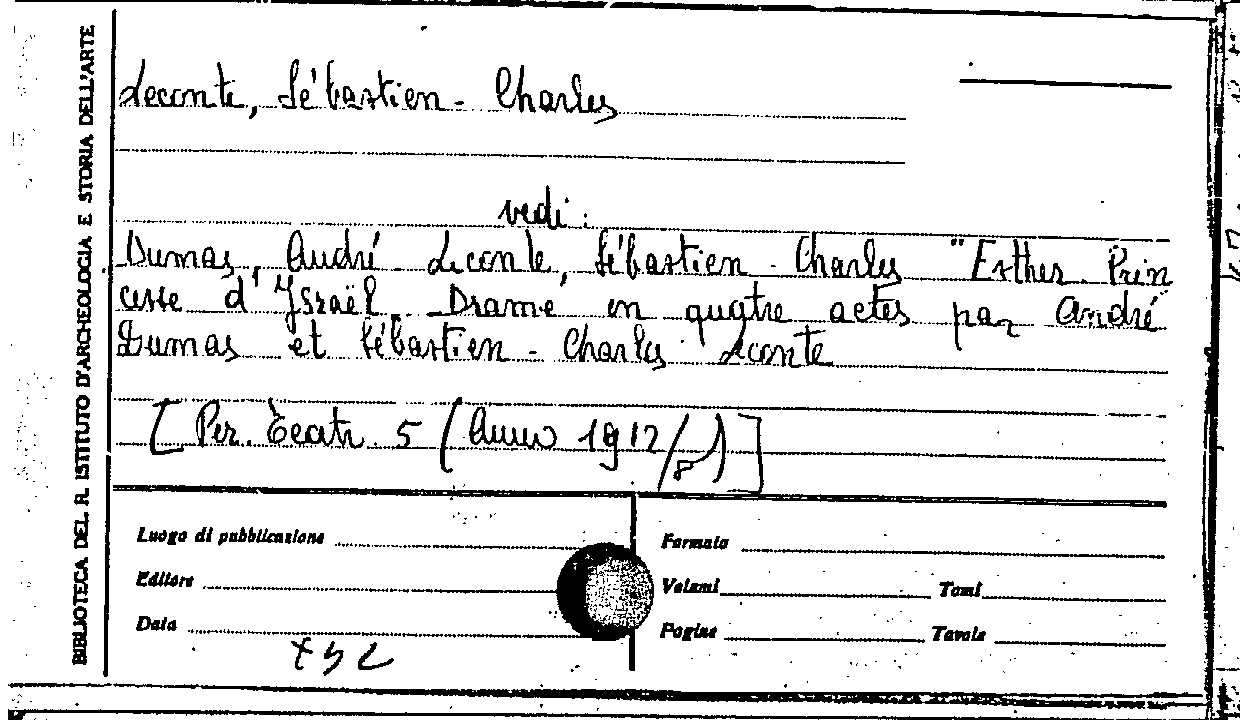 BIBLIOTECA DEL R. ISTITUTO D'ARCHEOLOGIA E STORIA DELL'ARTE
Leconte, Sébastien - Charles
vedi:
Dumas, André - Leconte, Sébastien - Charles "Esther. Prin
cesse d'Israël. Drame en quatre actes par André
Dumas et Sébastien - Charles Leconte
[Per. Teatr. 5 (Anno 1912/8)]
Luogo di pubblicazione
Formato
Editore
Volumi Tomi
Data
Pagine Tavole